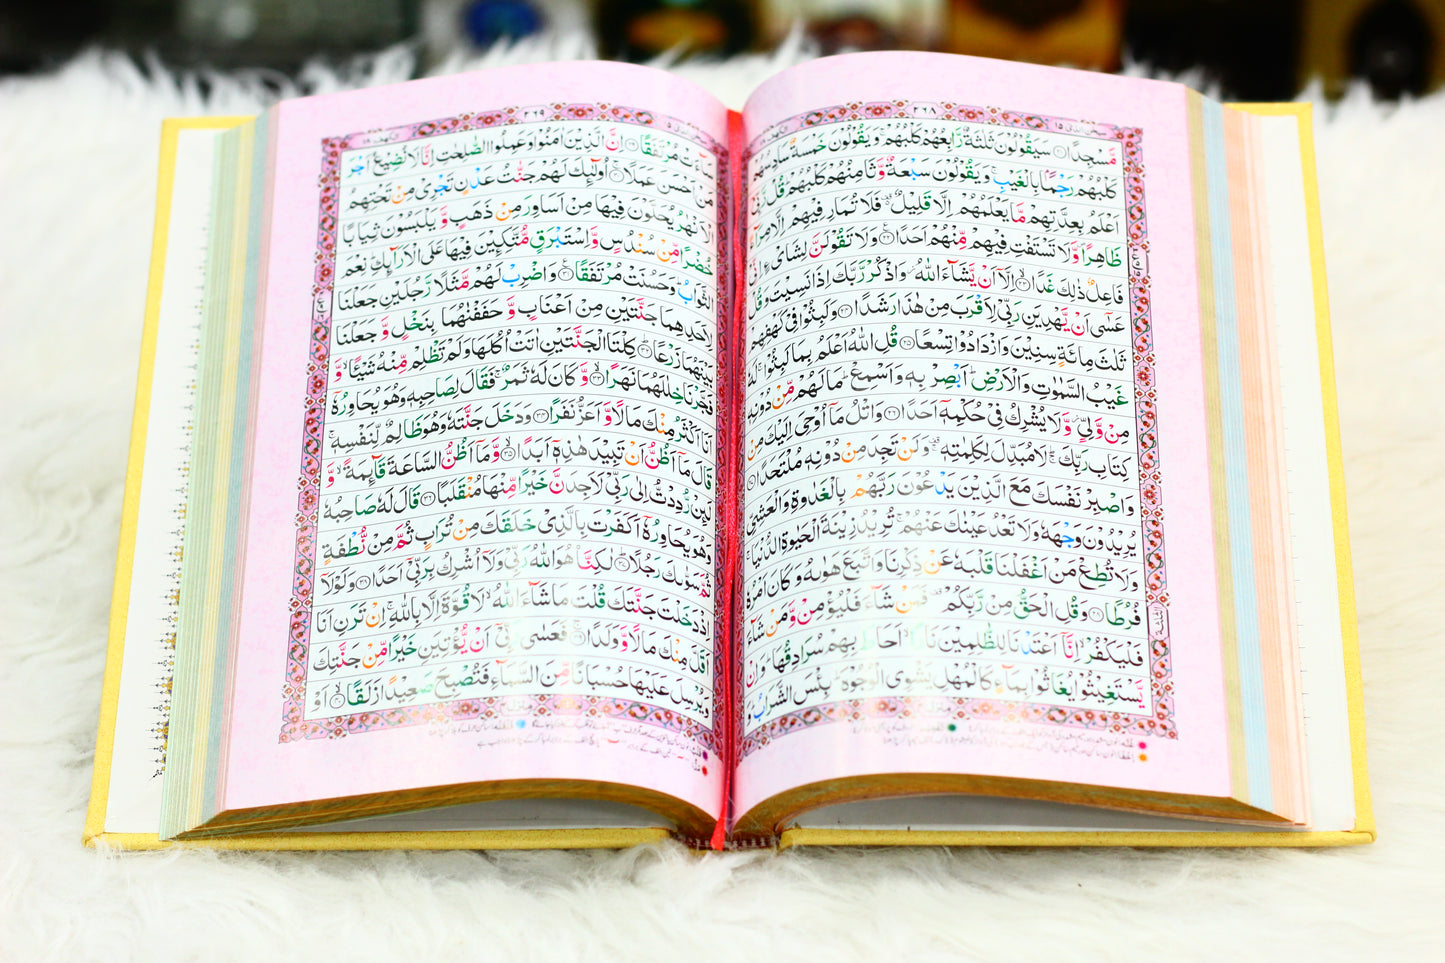 سبحن الذي ١٥
٢٦٨
مَّسْجِدًا ۝٢١ سَيَقُوْلُوْنَ ثَلٰثَةٌ رَّابِعُهُمْ كَلْبُهُمْ ۚ وَيَقُوْلُوْنَ خَمْسَةٌ سَادِسُهُمْ
كَلْبُهُمْ رَجْمًۢا بِالْغَيْبِ ۚ وَيَقُوْلُوْنَ سَبْعَةٌ وَّثَامِنُهُمْ كَلْبُهُمْ ؕ قُلْ رَّبِّيْۤ
اَعْلَمُ بِعِدَّتِهِمْ مَّا يَعْلَمُهُمْ اِلَّا قَلِيْلٌ ۬۫ فَلَا تُمَارِ فِيْهِمْ اِلَّا مِرَآءً
ظَاهِرًا ۪ وَّلَا تَسْتَفْتِ فِيْهِمْ مِّنْهُمْ اَحَدًا ۝٢٢ وَلَا تَقُوْلَنَّ لِشَايْءٍ اِنِّيْ
فَاعِلٌ ذٰلِكَ غَدًا ۝٢٣ اِلَّاۤ اَنْ يَّشَآءَ اللّٰهُ ؗ وَاذْكُرْ رَّبَّكَ اِذَا نَسِيْتَ وَقُلْ
عَسٰۤى اَنْ يَّهْدِيَنِ رَبِّيْ لِاَقْرَبَ مِنْ هٰذَا رَشَدًا ۝٢٤ وَلَبِثُوْا فِيْ كَهْفِهِمْ
ثَلٰثَ مِائَةٍ سِنِيْنَ وَازْدَادُوْا تِسْعًا ۝٢٥ قُلِ اللّٰهُ اَعْلَمُ بِمَا لَبِثُوْا ۚ لَهٗ
غَيْبُ السَّمٰوٰتِ وَالْاَرْضِ ؕ اَبْصِرْ بِهٖ وَاَسْمِعْ ؕ مَا لَهُمْ مِّنْ دُوْنِهٖ
مِنْ وَّلِيٍّ ؗ وَّلَا يُشْرِكُ فِيْ حُكْمِهٖۤ اَحَدًا ۝٢٦ وَاتْلُ مَاۤ اُوْحِيَ اِلَيْكَ مِنْ
كِتَابِ رَبِّكَ ؕۚ لَا مُبَدِّلَ لِكَلِمٰتِهٖ ۫ۚ وَلَنْ تَجِدَ مِنْ دُوْنِهٖ مُلْتَحَدًا ۝٢٧
وَاصْبِرْ نَفْسَكَ مَعَ الَّذِيْنَ يَدْعُوْنَ رَبَّهُمْ بِالْغَدٰوةِ وَالْعَشِيِّ
يُرِيْدُوْنَ وَجْهَهٗ وَلَا تَعْدُ عَيْنٰكَ عَنْهُمْ ۚ تُرِيْدُ زِيْنَةَ الْحَيٰوةِ الدُّنْيَا ۚ
وَلَا تُطِعْ مَنْ اَغْفَلْنَا قَلْبَهٗ عَنْ ذِكْرِنَا وَاتَّبَعَ هَوٰىهُ وَكَانَ اَمْرُهٗ
فُرُطًا ۝٢٨ وَقُلِ الْحَقُّ مِنْ رَّبِّكُمْ ۫ فَمَنْ شَآءَ فَلْيُؤْمِنْ وَّمَنْ شَآءَ
فَلْيَكْفُرْ ۙ اِنَّاۤ اَعْتَدْنَا لِلظّٰلِمِيْنَ نَارًا ۙ اَحَاطَ بِهِمْ سُرَادِقُهَا ؕ وَاِنْ
يَّسْتَغِيْثُوْا يُغَاثُوْا بِمَآءٍ كَالْمُهْلِ يَشْوِي الْوُجُوْهَ ؕ بِئْسَ الشَّرَابُ ؕ وَ
٢٦٩
سَآءَتْ مُرْتَفَقًا ۝٢٩ اِنَّ الَّذِيْنَ اٰمَنُوْا وَعَمِلُوا الصّٰلِحٰتِ اِنَّا لَا نُضِيْعُ اَجْرَ
مَنْ اَحْسَنَ عَمَلًا ۝٣٠ اُولٰٓئِكَ لَهُمْ جَنّٰتُ عَدْنٍ تَجْرِيْ مِنْ تَحْتِهِمُ
الْاَنْهٰرُ يُحَلَّوْنَ فِيْهَا مِنْ اَسَاوِرَ مِنْ ذَهَبٍ وَّيَلْبَسُوْنَ ثِيَابًا
خُضْرًا مِّنْ سُنْدُسٍ وَّاِسْتَبْرَقٍ مُّتَّكِـِٕيْنَ فِيْهَا عَلَى الْاَرَآئِكِ ؕ نِعْمَ
الثَّوَابُ ؕ وَحَسُنَتْ مُرْتَفَقًا ۝٣١ وَاضْرِبْ لَهُمْ مَّثَلًا رَّجُلَيْنِ جَعَلْنَا
لِاَحَدِهِمَا جَنَّتَيْنِ مِنْ اَعْنَابٍ وَّحَفَفْنٰهُمَا بِنَخْلٍ وَّجَعَلْنَا
بَيْنَهُمَا زَرْعًا ۝٣٢ كِلْتَا الْجَنَّتَيْنِ اٰتَتْ اُكُلَهَا وَلَمْ تَظْلِمْ مِّنْهُ شَيْـًٔا ۙ وَّ
فَجَّرْنَا خِلٰلَهُمَا نَهَرًا ۝٣٣ وَّكَانَ لَهٗ ثَمَرٌ ۚ فَقَالَ لِصَاحِبِهٖ وَهُوَ يُحَاوِرُهٗۤ
اَنَا اَكْثَرُ مِنْكَ مَالًا وَّاَعَزُّ نَفَرًا ۝٣٤ وَدَخَلَ جَنَّتَهٗ وَهُوَ ظَالِمٌ لِّنَفْسِهٖ ۚ
قَالَ مَاۤ اَظُنُّ اَنْ تَبِيْدَ هٰذِهٖۤ اَبَدًا ۝٣٥ وَّمَاۤ اَظُنُّ السَّاعَةَ قَآئِمَةً ۙ وَّ
لَئِنْ رُّدِدْتُّ اِلٰى رَبِّيْ لَاَجِدَنَّ خَيْرًا مِّنْهَا مُنْقَلَبًا ۝٣٦ قَالَ لَهٗ صَاحِبُهٗ
وَهُوَ يُحَاوِرُهٗۤ اَكَفَرْتَ بِالَّذِيْ خَلَقَكَ مِنْ تُرَابٍ ثُمَّ مِنْ نُّطْفَةٍ
ثُمَّ سَوّٰىكَ رَجُلًا ۝٣٧ لٰكِنَّا۠ هُوَ اللّٰهُ رَبِّيْ وَلَاۤ اُشْرِكُ بِرَبِّيْۤ اَحَدًا ۝٣٨ وَلَوْلَاۤ
اِذْ دَخَلْتَ جَنَّتَكَ قُلْتَ مَا شَآءَ اللّٰهُ ۙ لَا قُوَّةَ اِلَّا بِاللّٰهِ ۚ اِنْ تَرَنِ اَنَا
اَقَلَّ مِنْكَ مَالًا وَّوَلَدًا ۝٣٩ فَعَسٰى رَبِّيْۤ اَنْ يُّؤْتِيَنِ خَيْرًا مِّنْ جَنَّتِكَ
وَيُرْسِلَ عَلَيْهَا حُسْبَانًا مِّنَ السَّمَآءِ فَتُصْبِحَ صَعِيْدًا زَلَقًا ۝٤٠ اَوْ